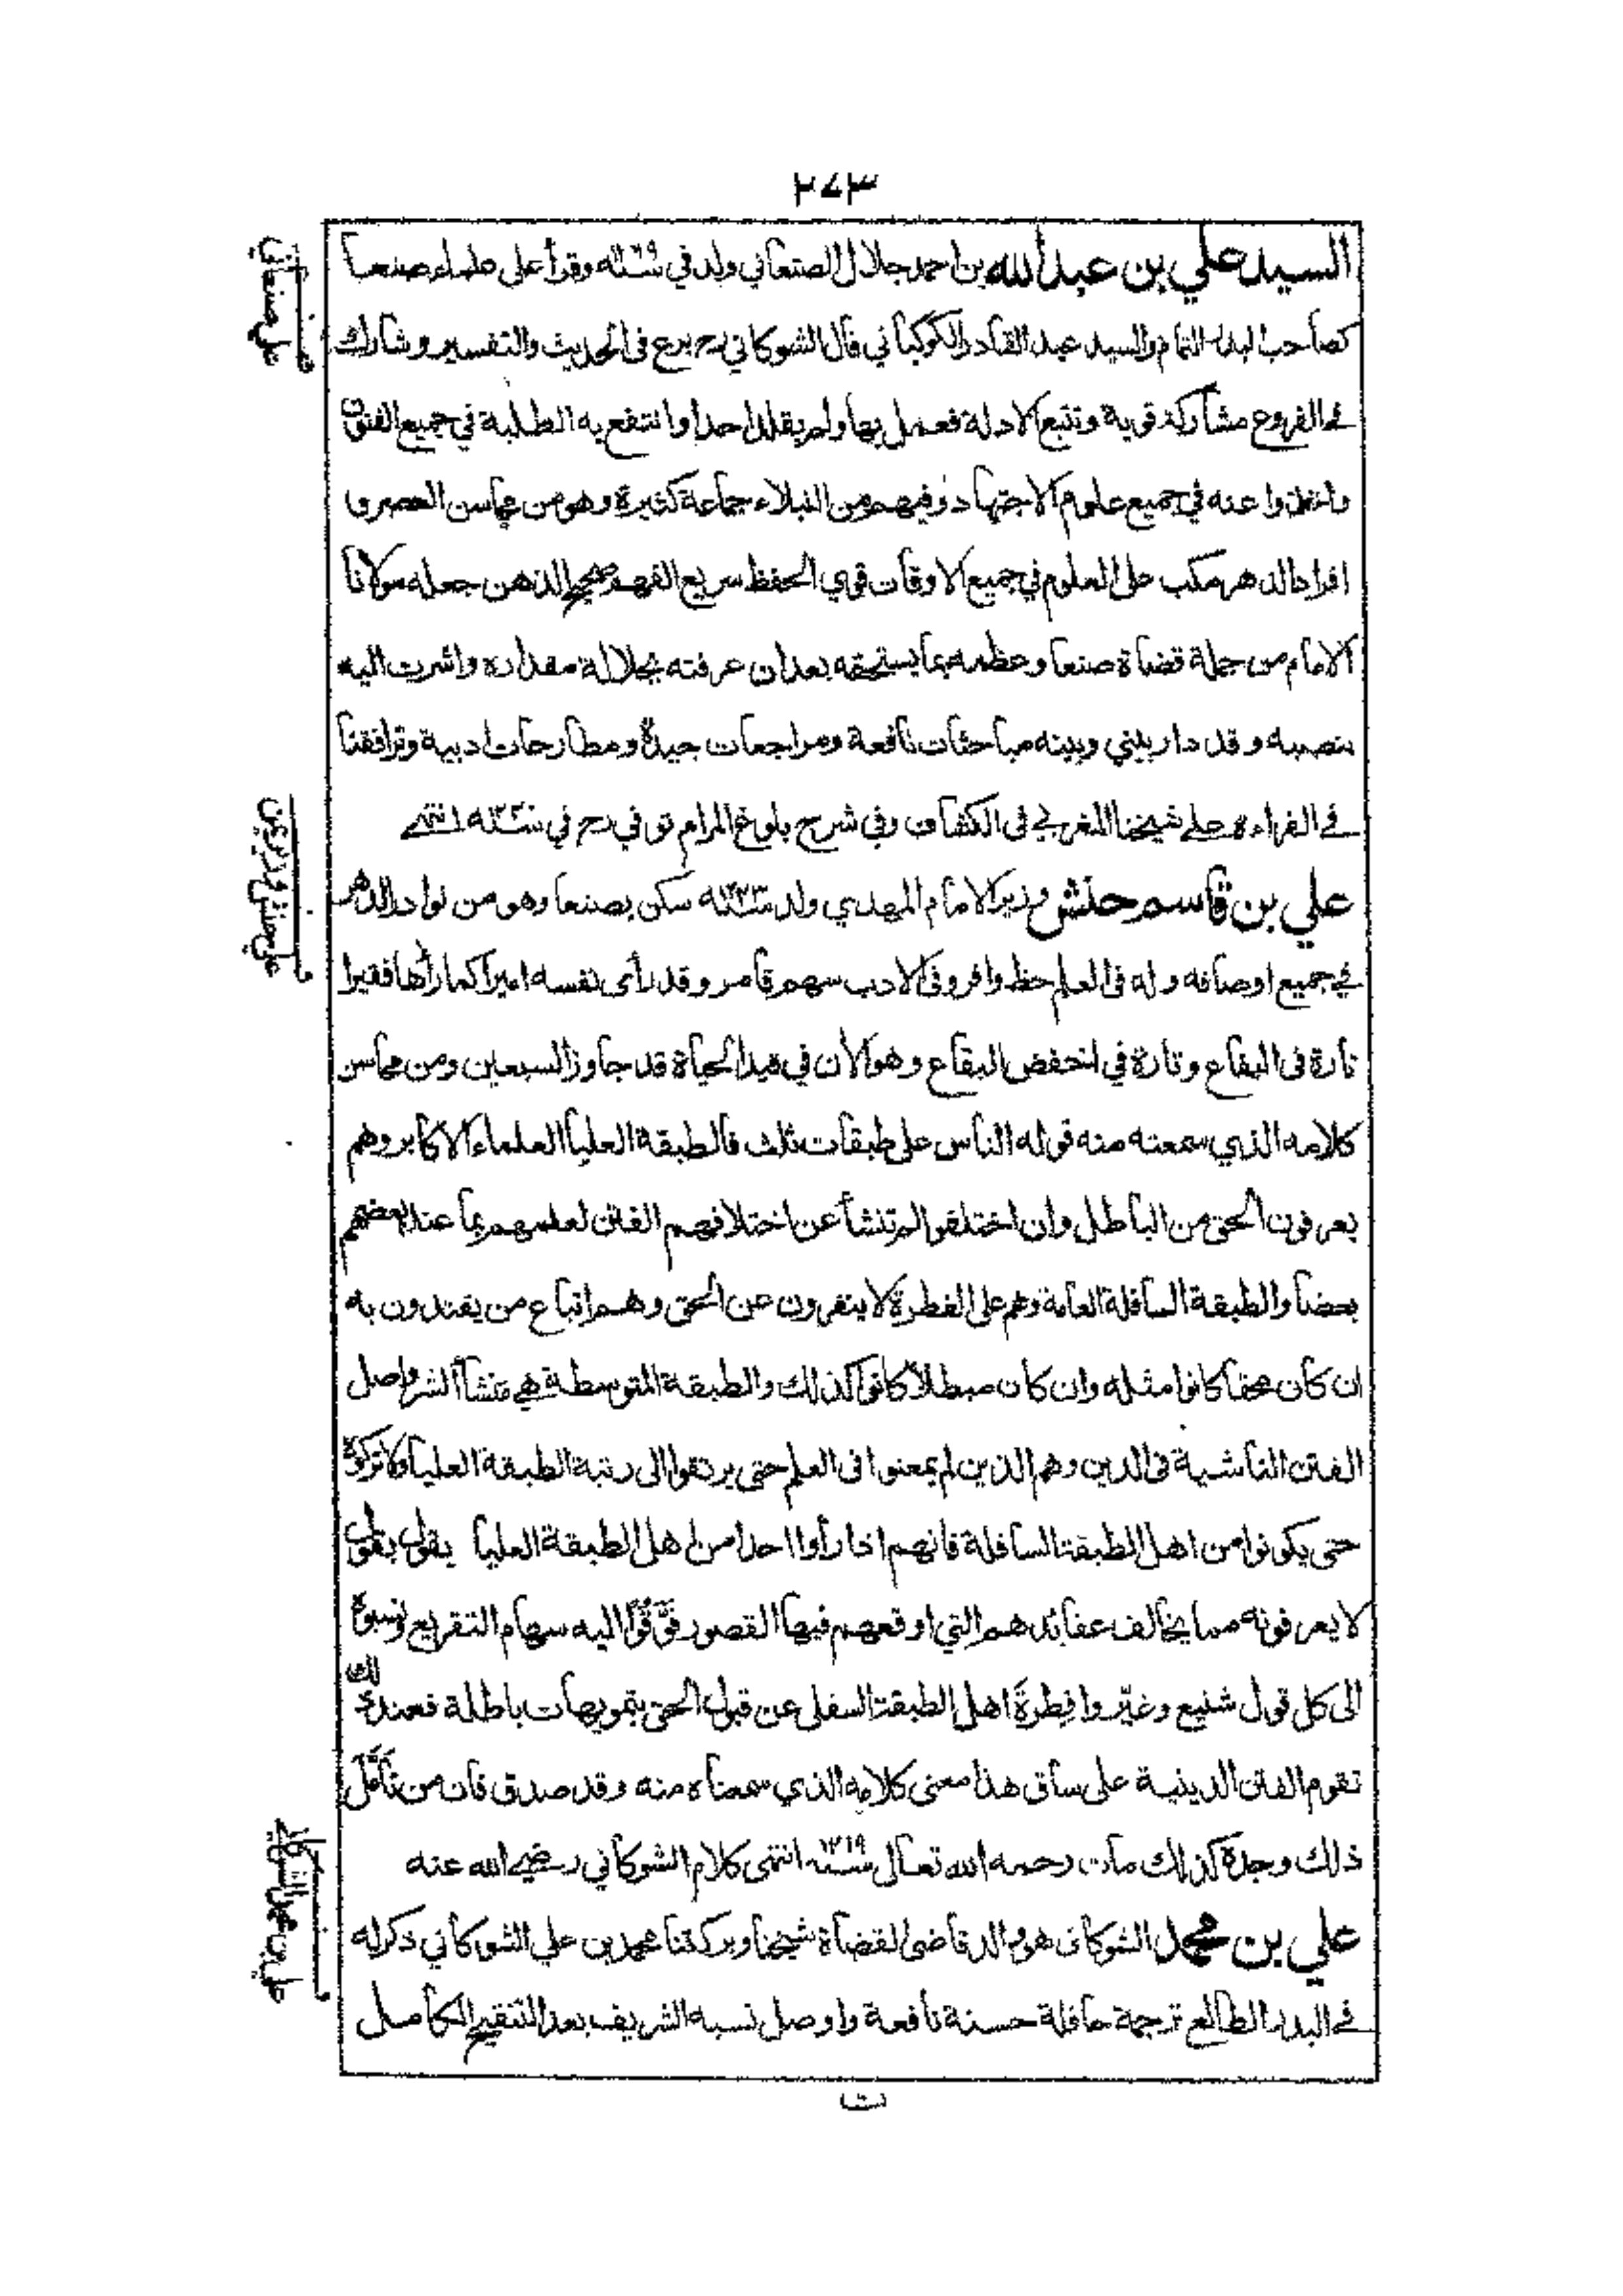 ٢٧٣
السيد علي بن عبد الله بن احمد جلال الصنعاني ولد في سنة وقرأ على علماء صنعا
كصاحب البدر التمام والسيد عبد القادر الكوكباني قال الشوكاني رح برع فى الحديث والتفسير وشارك
في الفروع مشاركة قوية وتتبع الادلة فعمل بها ولم يقلد احدا وانتفع به الطلبة في جميع الفنون
واخذوا عنه في جميع علوم الاجتهاد وفيهم من النبلاء جماعة كثيرة وهو من محاسن العصر و
افراد الدهر مكب على العلوم في جميع الاوقات قوي الحفظ سريع الفهم صحيح الذهن جعله مولانا
الامام من جملة قضاة صنعا وعظمه بما يستحقه بعد ان عرفته بجلالة مقداره واشرت اليه
بنصبه وقد دار بيني وبينه مباحثات نافعة ومراجعات جيدة ومطارحات ادبية وترافقنا
في القراءة على شيخنا المغربي فى الكشاف وفي شرح بلوغ المرام توفي رح في سنة انتهى
علي بن قاسم حنش وزير الامام المهدي ولد سنة سكن بصنعا وهو من نوادر الدهر
في جميع اوصافه وله فى العلم حظ وافر وفى الادب سهم قامر وقد رأى نفسه اميرا كما رأها فقيرا
تارة فى اليفاع وتارة في اخفض البقاع وهو الأن في قيد الحياة قد جاوز السبعين ومن محاسن
كلامه الذي سمعته منه قوله الناس على طبقات ثلث فالطبقة العليا العلماء الاكابر وهم
يعرفون الحق من الباطل وان اختلفوا لم تنشأ عن اختلافهم الفتن لعلمهم بما عند بعضهم
بعضا والطبقة السافلة العامة وهم على الفطرة لا ينفرون عن الحق وهم اتباع من يقتدون به
ان كان محقا كانوا مثله وان كان مبطلا كانوا كذلك والطبقة المتوسطة هي منشأ الشر واصل
الفتن الناشية فى الدين وهم الذين لم يمعنوا فى العلم حتى يرتقوا الى رتبة الطبقة العليا ولا تركوه
حتى يكونوا من اهل الطبقة السافلة فانهم اذا رأوا احدا من اهل الطبقة العليا يقول بقول
لا يعرفونه مما يخالف عقائدهم التي اوقعهم فيها القصور فَوَّقُوا اليه سهام التقريع ونسبوه
الى كل قول شنيع وغيّروا فِطرةَ اهل الطبقة السفلى عن قبول الحق بتمويهات باطلة فعند ذلك
تقوم الفتن الدينية على ساق هذا معنى كلامه الذي سمعناه منه وقد صدق فان من تأمّل
ذلك وجده كذلك مات رحمه الله تعالى سنة ١٢١٩ انتهى كلام الشوكاني رضي الله عنه
علي بن محمد الشوكانى هو والد قاضى القضاة شيخنا وبركتنا محمد بن علي الشوكاني ذكر له
في البدر الطالع ترجمة حافلة حسنة نافعة واوصل نسبه الشريف بعد التنقيح الكامل
علي صنعاني
علي حنش وزير يمن
علي بن محمد الشوكاني
ت